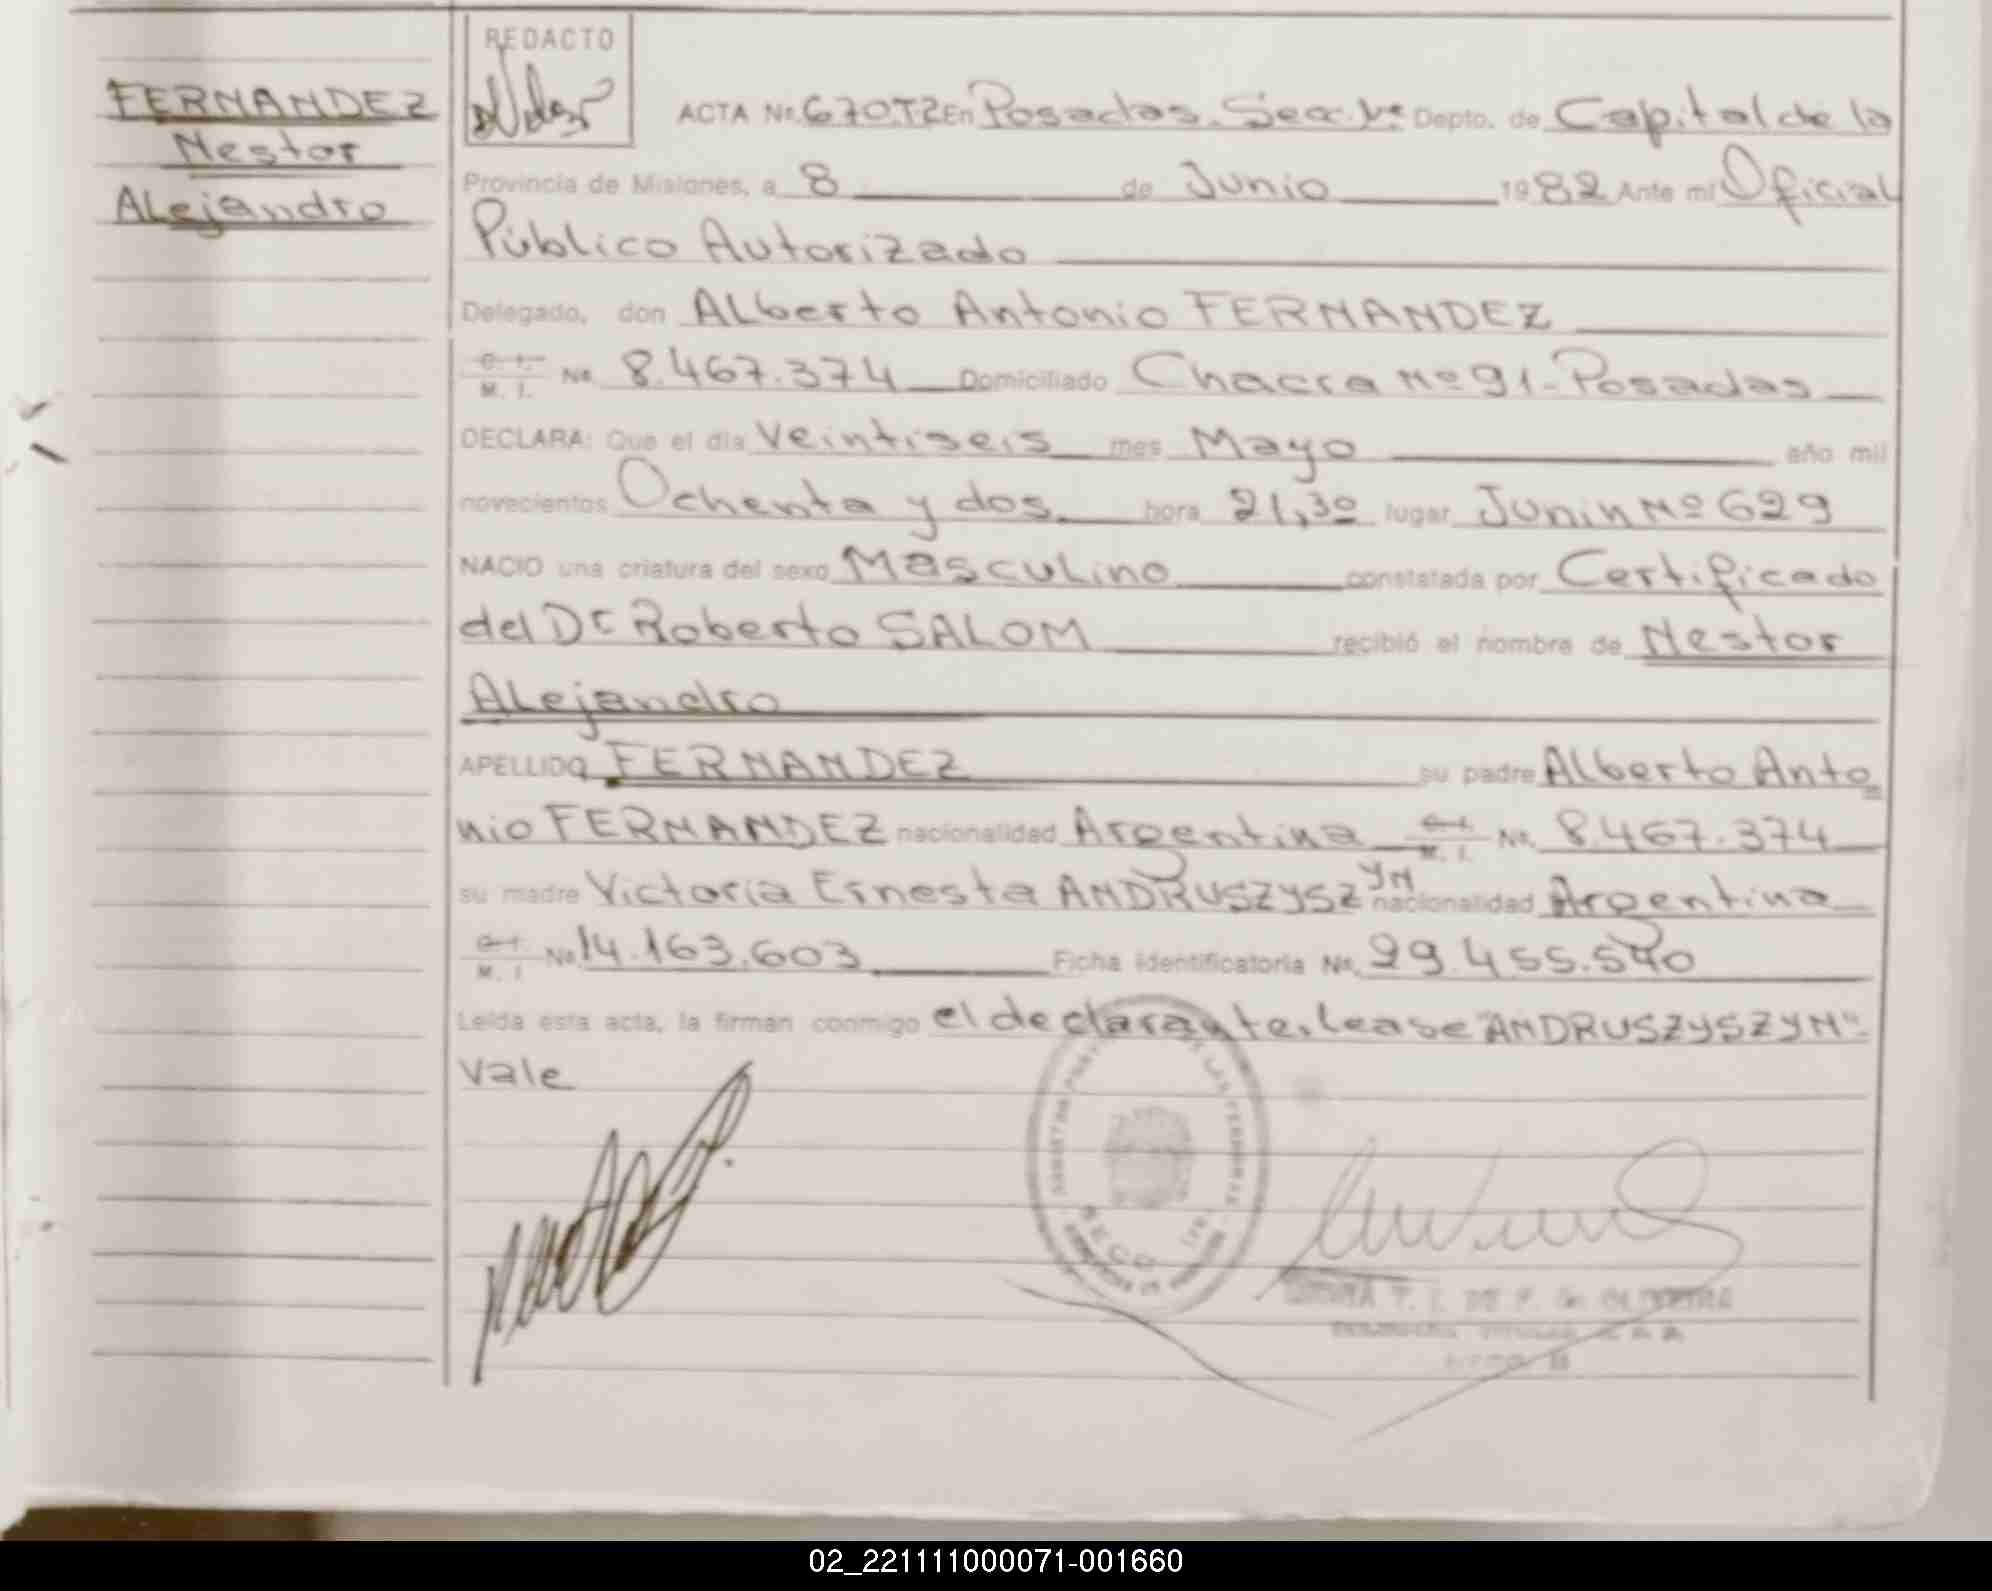 FERNANDEZ
Nestor
Alejandro
REDACTO
ACTA No. 670T2 En Posadas. Secc. 1ª Depto. de Capital de la
Provincia de Misiones, a 8 de Junio 1982 Ante mí Oficial
Público Autorizado
Delegado, don Alberto Antonio FERNANDEZ
C. I. M. I. No. 8.467.374 Domiciliado Chacra Nº 91 - Posadas
DECLARA: Que el día Veintiseis mes Mayo año mil
novecientos Ochenta y dos hora 21,30 lugar Junin Nº 629
NACIO una criatura del sexo Masculino constatada por Certificado
del Dr Roberto SALOM recibió el nombre de Nestor
Alejandro
APELLIDO FERNANDEZ su padre Alberto Anto
nio FERNANDEZ nacionalidad Argentina C. I. M. I. No. 8.467.374
su madre Victoria Ernesta ANDRUSZYSZYN nacionalidad Argentina
C. I. M. I. No. 14.163.603 Ficha identificatoria No. 29.455.540
Leída esta acta, la firman conmigo el declarante. Lease "ANDRUSZYSZYN".
Vale
02_221111000071-001660